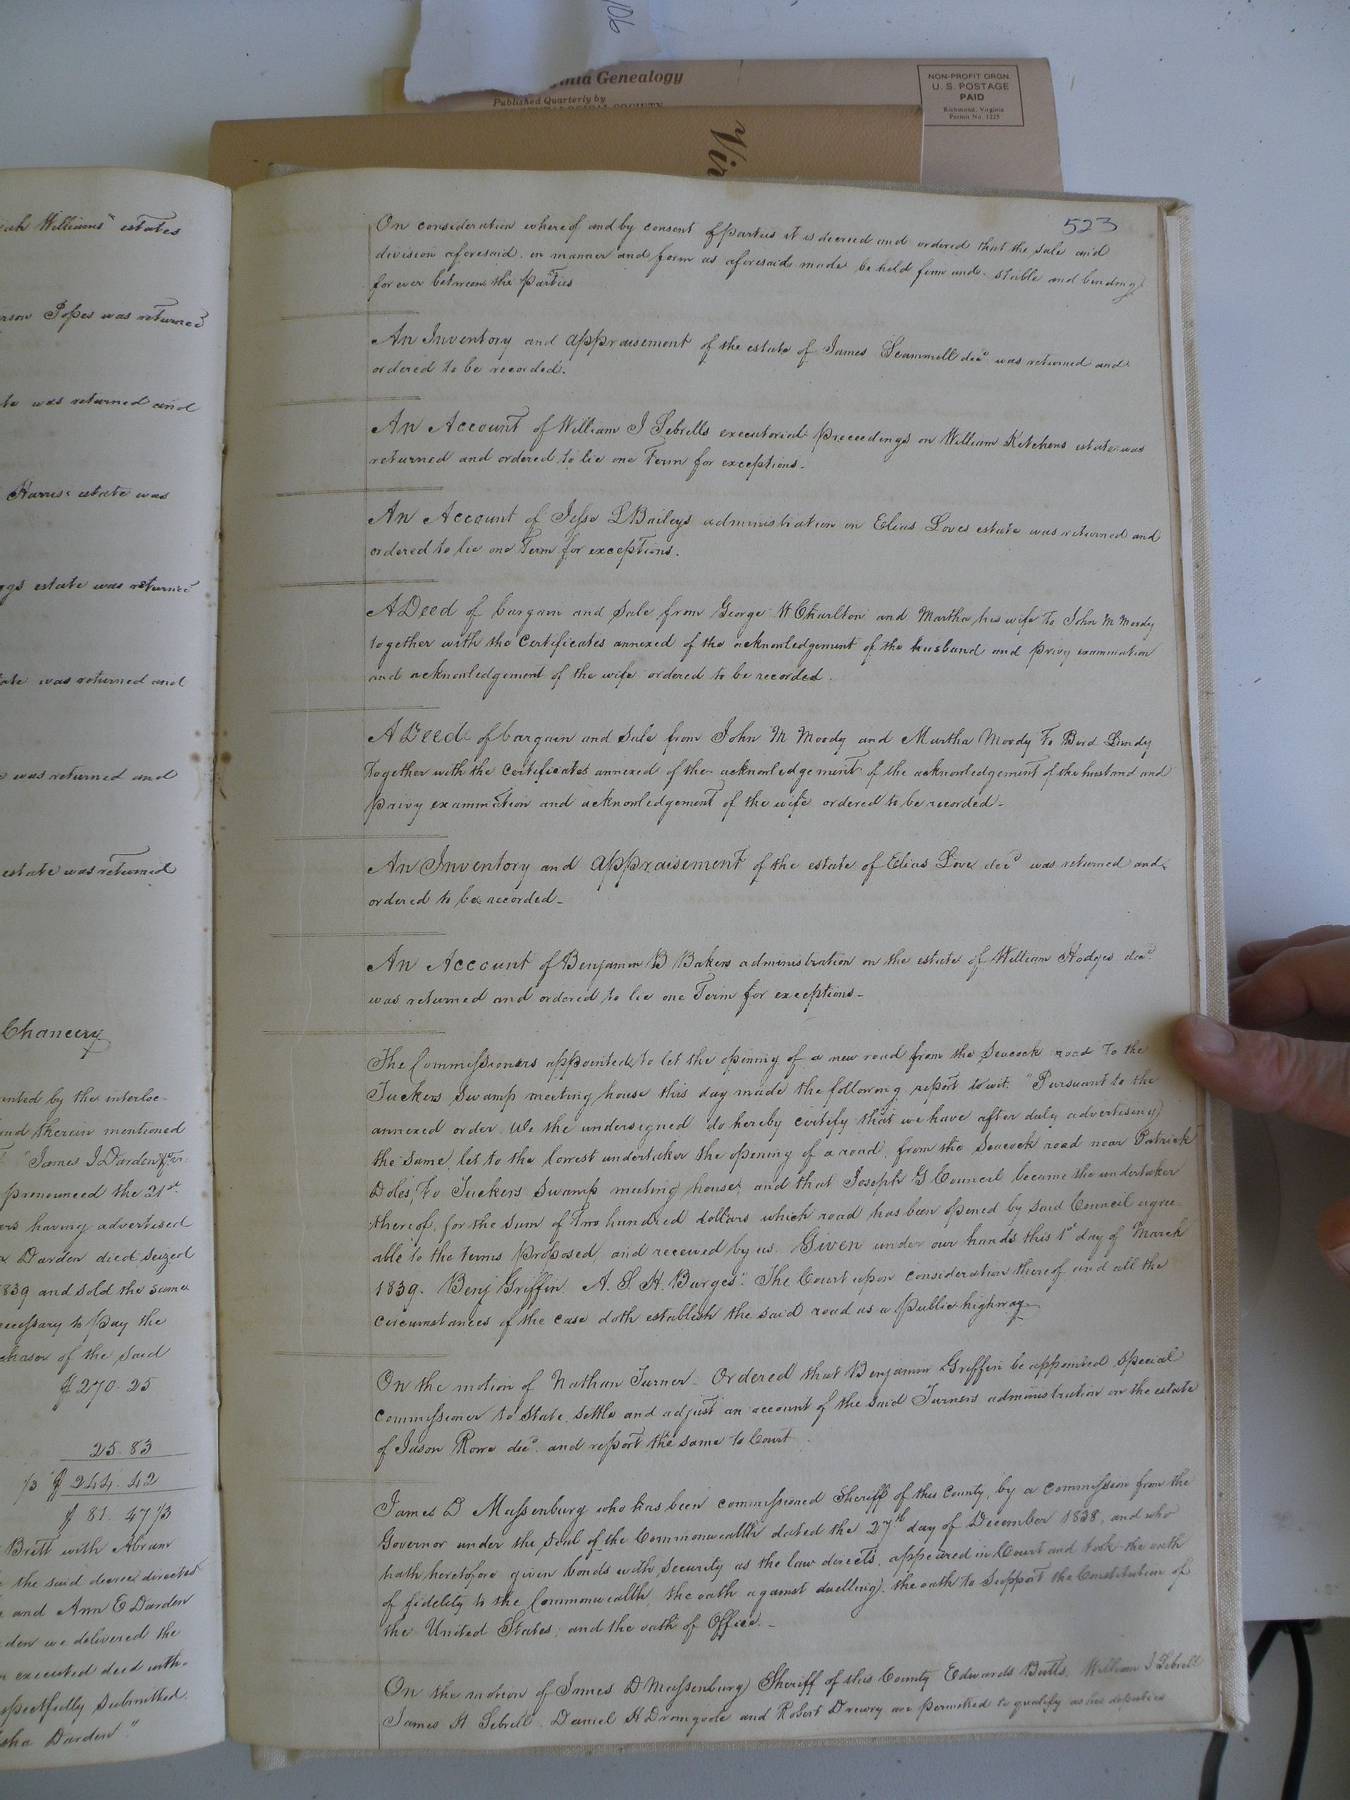 106
Virginia Genealogy
Published Quarterly by
NON-PROFIT ORGN.
U. S. POSTAGE
PAID
Richmond, Virginia
Permit No. 1225
Vir
Williams' estates
Popes was returned
was returned and
Harris' estate was
estate was returned
was returned and
was returned and
estate was returned
Chancery
by the interloc-
therein mentioned
James J Darden &c
pronounced the 21st
having advertised
Darden died seized
1839 and sold the same
necessary to pay the
of the said
$270.25
25.83
1/3 $244.42
$81.47 1/3
Britt with Abram
the said decree directed
and Ann E Darden
we delivered the
executed deed with-
respectfully submitted
Darden"
523
On consideration whereof and by consent of parties it is decreed and ordered that the sale and
division aforesaid in manner and form as aforesaid made be held firm and stable and binding
forever between the parties
An Inventory and appraisement of the estate of James Scammell decd was returned and
ordered to be recorded.
An Account of William J Sebrells executorial proceedings on William Kitchens estate was
returned and ordered to lie one Term for exceptions-
An Account of Jesse L Baileys administration on Elias Loves estate was returned and
ordered to lie one Term for exceptions.
A Deed of bargain and sale from George W Charlton and Martha his wife to John M Moody
together with the certificates annexed of the acknowledgement of the husband and privy examination
and acknowledgement of the wife ordered to be recorded.
A Deed of bargain and sale from John M Moody and Martha Moody To Bird Lundy
together with the certificates annexed of the acknowledgement of the acknowledgement of the husband and
privy examination and acknowledgement of the wife ordered to be recorded-
An Inventory and appraisement of the estate of Elias Love decd was returned and
ordered to be recorded-
An Account of Benjamin B Bakers administration on the estate of William Hodges decd
was returned and ordered to lie one Term for exceptions-
The Commissioners appointed to let the opening of a new road from the Seacock road to the
Tuckers Swamp meeting house this day made the following report to wit: "Pursuant to the
annexed order We the undersigned do hereby certify that we have after duly advertising
the same let to the lowest undertaker the opening of a road from the Seacock road near Patrick
Doles, To Tuckers Swamp meeting house, and that Joseph G Council became the undertaker
thereof, for the sum of Two hundred dollars which road has been opened by said Council agree-
able to the terms proposed and received by us. Given under our hands this 1st day of March
1839. Benj Griffin A. S. H. Burges". The Court upon consideration thereof and all the
circumstances of the case doth establish the said road as a public highway-
On the motion of Nathan Turner- Ordered that Benjamin Griffin be appointed special
commissioner to state settle and adjust an account of the said Turners administration on the estate
of Jason Rowe decd and report the same to Court.
James D Massenburg who has been commissioned Sheriff of this County, by a commission from the
Governor under the seal of the Commonwealth dated the 27th day of December 1838, and who
hath heretofore given bonds with security as the law directs, appeared in Court and took the oath
of fidelity to the Commonwealth, the oath against duelling, the oath to support the Constitution of
the United States, and the oath of Office.-
On the motion of James D Massenburg Sheriff of this County Edwards Butts, William J Sebrell
James H Sebrell, Daniel H Dromgoole and Robert Drewry are permitted to qualify as his deputies